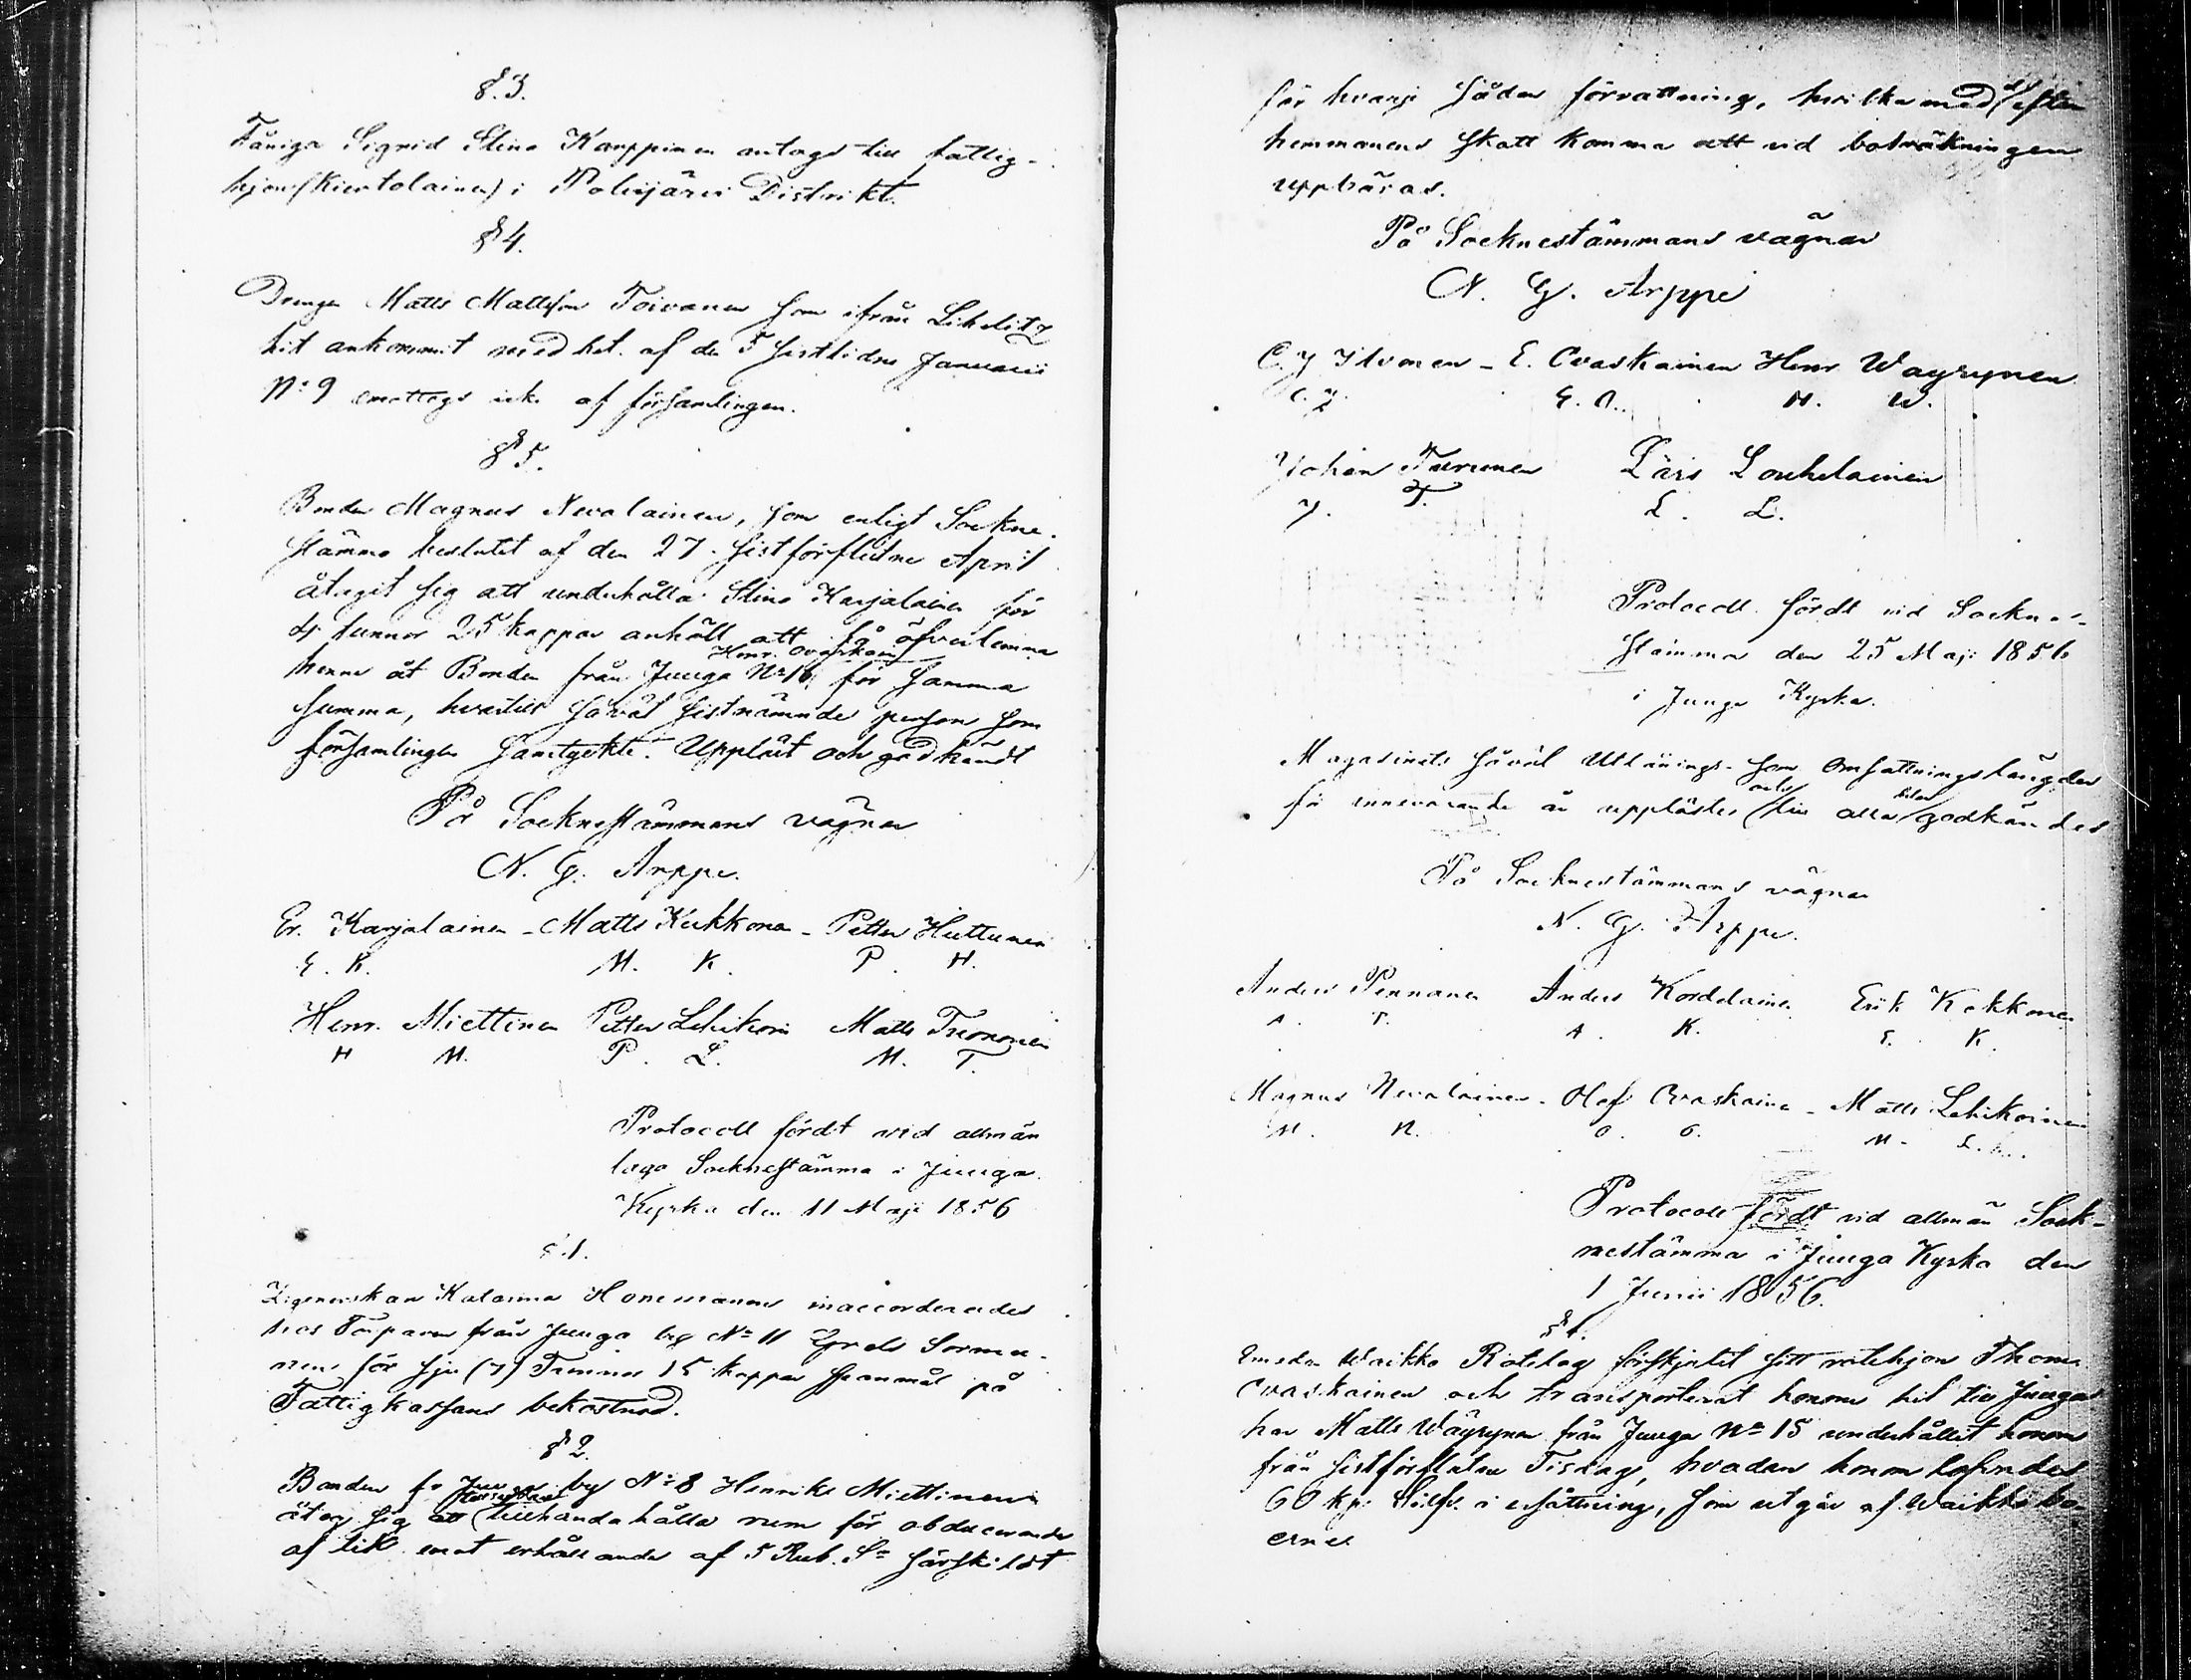 §.3.
Fåniga Sigrid Stina Karppinen antogs till fattig-
hjon (Kiertolainen) i Polvijärvi Distrikt.
§ 4.
Drengen Matts Mattsson Toivanen som ifrån Libelitz
hit ankommit med bet. af den 5 sistlidne Januarii
N:o 9 emottogs icke af församlingen.
§ 5.
Bonden Magnus Nevalainen, som enligt Sockne-
stämmo beslutet af den 27 sistförflutne April
åtagit sig att underhålla Stina Karjalainen för
4 tunnor 25 kappar anhöll att få öfverlemna
Henr. Ovaskain
henne åt Bonden från Juuga N:o 16 för samma
summa, hvartill såväl sistnämnde person som
församlingen samtyckte. Uppläst och godkändt
På Socknestämmans vägnar
N. G. Arppe.
Er. Karjalainen - Matts Kukkonen - Petter Huttunen
E. K. M. K. P. H.
Henr. Miettinen Petter Lehikoin Matts Tuononen
H M. P. L. M. T.
Protocoll fördt vid allmän
laga Socknestämma i Juuga
Kyrka den 11 Maji 1856
§.1.
Zigenerskan Katarina Honemanen inaccorderades
hos Torparen från Juuga by N:o 11 Sorma-
nen för sju (7) Tunnor 15 kappar spanmål på
Fattigkassans bekostnad.
§ 2.
Bonden fr Juuga by N:o 8 Henrik Miettinen
åtog sig att tillhandahålla rum för obducerande
af lik emot erhållande af 5 Rub. S:r särskildt
för hvarje sådan förrättning, hvilka medel efter
hemmanens skatt komma att vid boträkningen
uppbäras.
På Socknestämmans vägnar
N. G. Arppe
C. J Ilvonen - E. Ovaskainen Henr Wäyrynen
C. J. E. O. H. W.
Johan Turunen Lars Louhelainen
J. T. L. L.
Protocoll fördt vid Sockne-
stämma den 25 Maji 1856
i Juuga Kyrka.
Magasinets såväl Utlånings- som Omsättningslängder
för innevarande år upplästes och till alla delar godkändes
På Socknestämmans vägnar
N. G. Arppe.
Anders Pennanen Anders Kordelainen Erik Kokkonen
A. P. A. K. E. K.
Magnus Nevalainen - Olof Ovaskainen - Matts Lehikoinen
M. N. O. O. M. L.
Protocoll fördt vid allmän Sock-
nestämma i Juuga Kyrka den
1 Junii 1856.
§ 1.
Emedan Waikko Rotelag förskjutit sitt rotehjon Thom.
Ovaskainen och transporterat honom hit till Juuga
har Matts Wäyrynen från Juuga N:o 15 underhållit honom
från sistförflutne Tisdag, hvadan honom
60 kp: Silfr. i ersättning, som utgår af Waikko bo-
erne